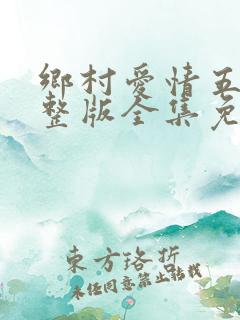 鄉村愛情五
整版全集免
東方珞折
未经同意禁止转载